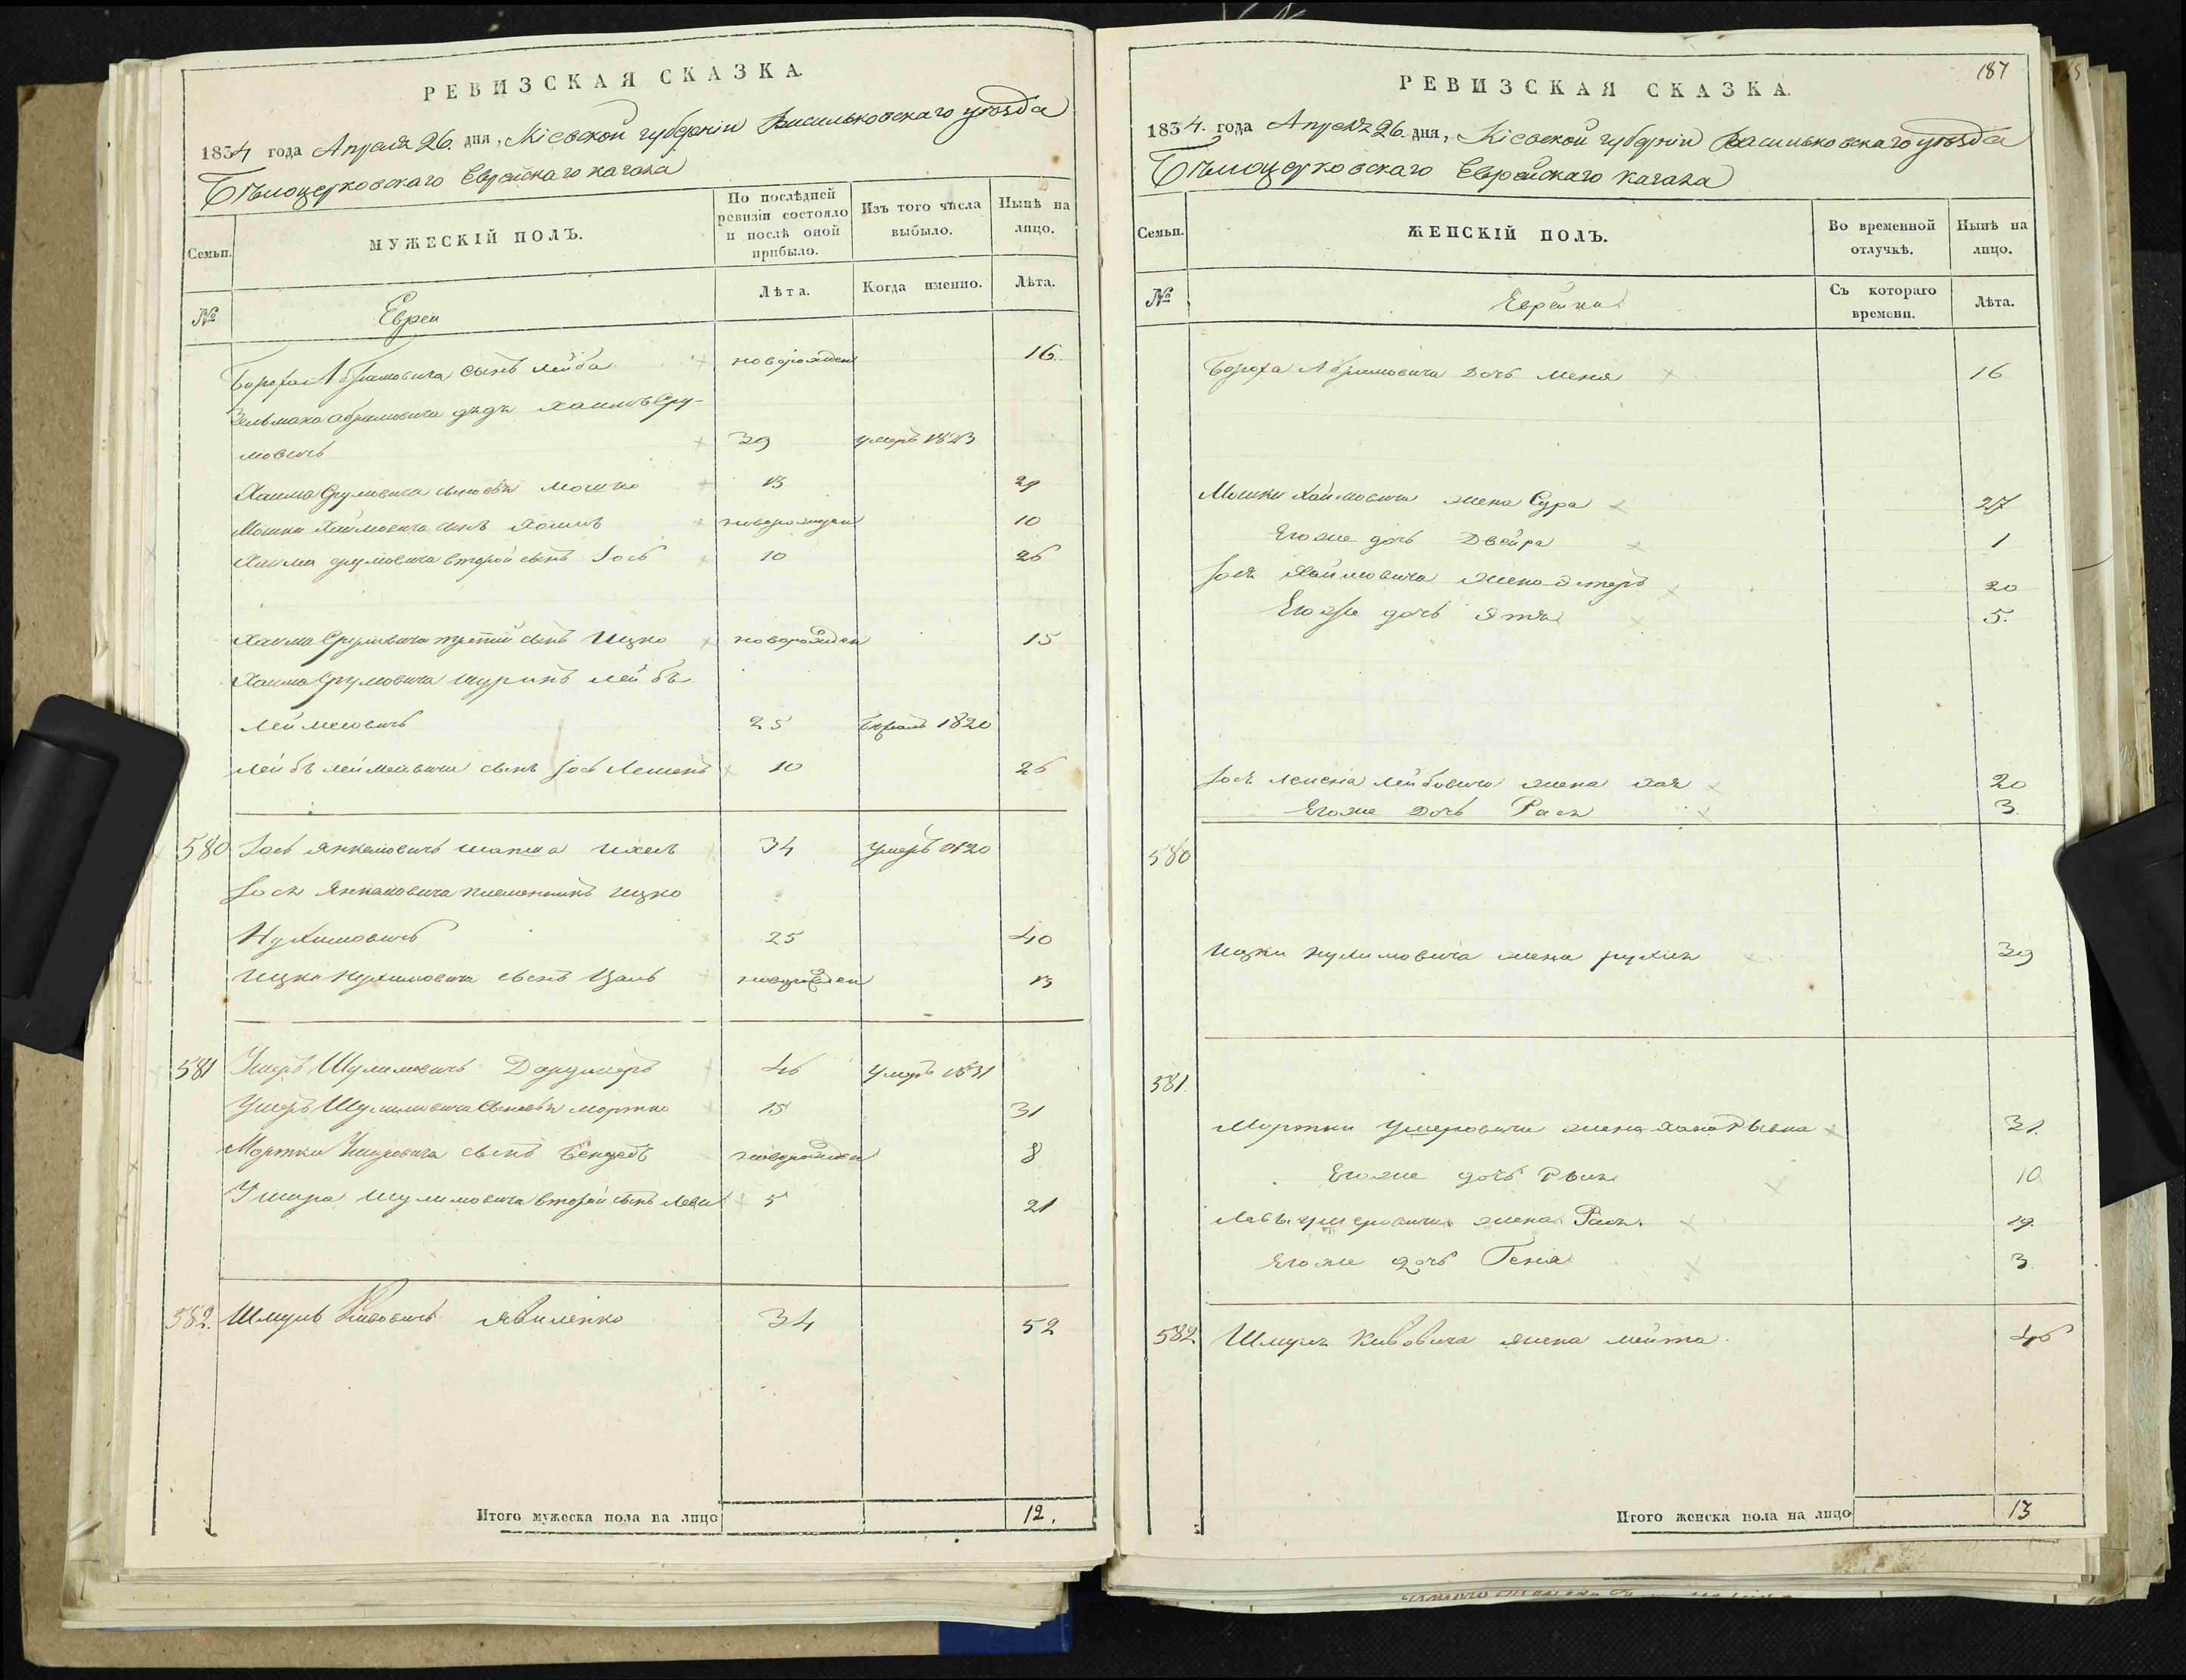 РЕВИЗСКАЯ СКАЗКА.
1834 года Апреля 26. дня, Кіевской губерніи Васильковскаго уѣзда
Бѣлоцерковскаго Еврейскаго кагала
Семьи.
МУЖЕСКІЙ ПОЛЪ.
По послѣдней ревизіи состояло и послѣ оной прибыло.
Изъ того числа выбыло.
Нынѣ на лицо.
№
Евреи
Лѣта.
Когда именно.
Лѣта.
Бороха Абрамовича сынъ Лейба новорожден 16.
Зельмана Абрамовича дядя Хаимъ Сру-
мовичь 39 умеръ 1823
Хаима Срумовича сыновья Мошко 13 29
Мошки Хаимовича сынъ Хаимъ новорожден 10
Хаима Срумовича второй сынъ Іось 10 26
Хаима Срумовича третій сынъ Ицко новорожден 15
Хаима Срумовича шуринъ Лейбъ
25 1820
Лейбъ сынъ Іось 10 26
580 Іось Янкелевичь 34 умеръ 1820
Іося Янкеловича племенникъ Ицко
Нухимовичь 25 40
Ицки Нухимовича сынъ Цаль новорожден 13
581 Ушеръ Шулимовичь 46 умеръ 1831
Ушеръ Шулимовича сыновья Мортко 15 31
Мортки Ушеровича сынъ новорожден 8
Ушера Шулимовича второй сынъ Леви 5 21
582. Шмуль Кивовичь Явиленко 34 52
Итого мужеска пола на лицо 12.
187
РЕВИЗСКАЯ СКАЗКА.
1834. года Апреля 26. дня, Кіевской губерніи Васильковскаго уѣзда
Бѣлоцерковскаго Еврейскаго кагала
Семьи.
ЖЕНСКІЙ ПОЛЪ.
Во временной отлучкѣ.
Нынѣ на лицо.
№
Еврейки
Съ котораго времени.
Лѣта.
Бороха Абрамовича дочь Меня 16
Мошки Хаймовича жена Сура 27
Его же дочь Двейра 1
Іося Хаймовича жена Эстеръ 20
Его же дочь 5.
Іося Лейбовича жена Хая 20
Его же дочь Рася 3.
580
Ицки Нухимовича жена Рухля 39
581.
Мортки Ушеровича жена Хана Рывка 31.
Его же дочь 10
Левъ Ушеровича жена Рася 19.
Его же дочь Геня 3
582 Шмуля Кивовича жена Мейта 46
Итого женска пола на лицо 13